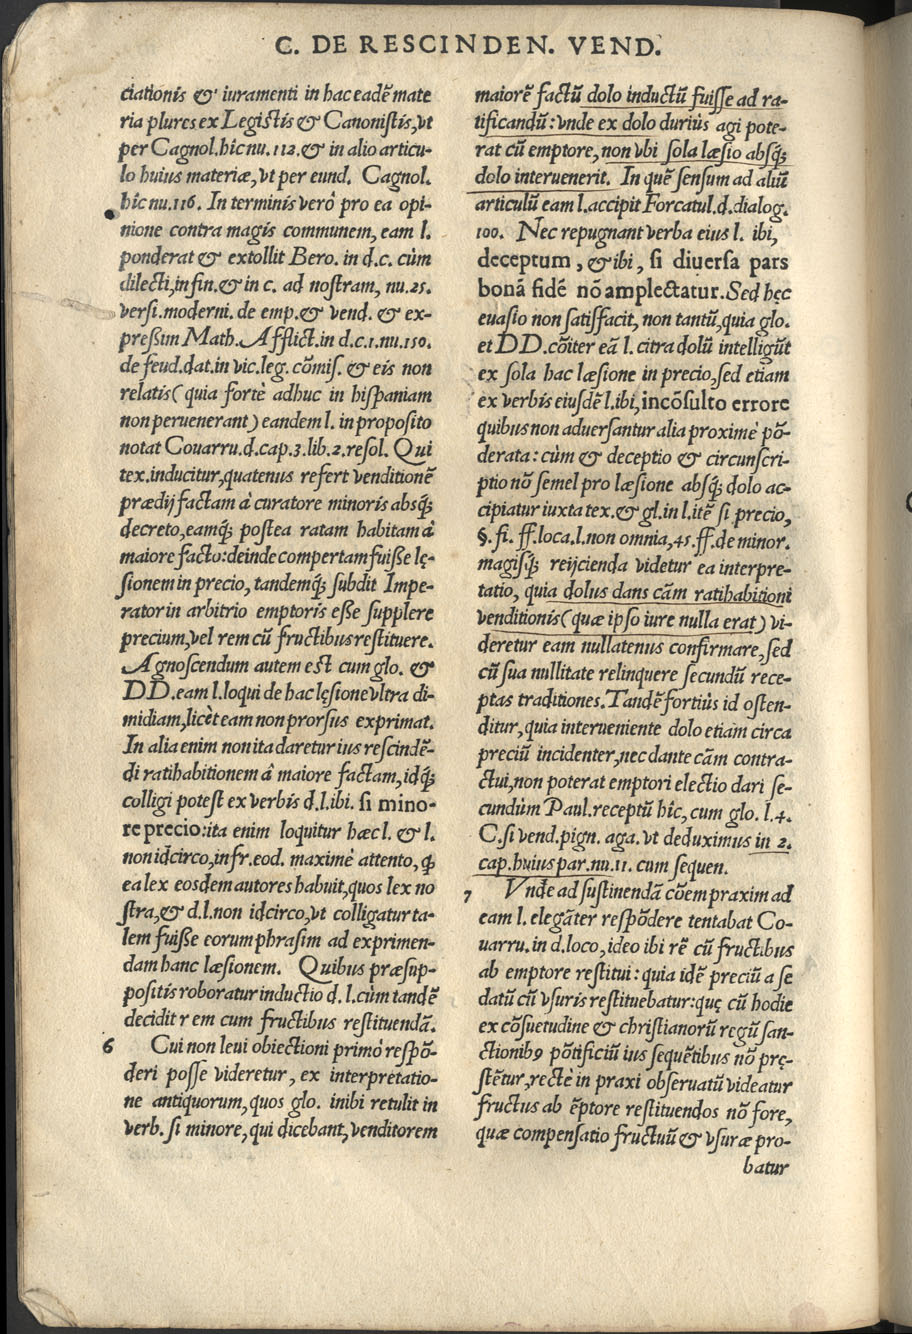 C. DE RESCINDEN. VEND.
ciationis & iuramenti in hac eadẽ mate
ria plures ex Legistis & Canonistis, vt
per Cagnol. hîc nu. 112. & in alio articu-
lo huius materiæ, vt per eund. Cagnol.
hîc nu. 116. In terminis verò pro ea opi-
nione contra magis communem, eam l.
ponderat & extollit Bero. in d. c. cùm
dilecti, in fin. & in c. ad nostram, nu. 25.
versi. moderni. de emp. & vend. & ex-
preßim Math. Afflict. in d. c. 1. nu. 150.
de feud. dat. in vic. leg. cõmis. & eis non
relatis (quia fortè adhuc in hispaniam
non peruenerant) eandem l. in proposito
notat Couarru. d. cap. 3. lib. 2. resol. Qui
tex. inducitur, quatenus refert venditionẽ
prædij factam à curatore minoris absq́;
decreto, eamq́; postea ratam habitam â
maiore facto: deinde compertam fuiße lę-
sionem in precio, tandemq́; subdit Impe-
rator in arbitrio emptoris eße supplere
precium, vel rem cũ fructibus restituere.
Agnoscendum autem est cum glo. &
DD. eam l. loqui de hac lesione vltra di-
midiam, licèt eam non prorsus exprimat.
In alia enim non ita daretur ius rescindẽ-
di ratihabitionem â maiore factam, idq́;
colligi potest ex verbis d. l. ibi. si mino-
re precio: ita enim loquitur hæc l. & l.
non idcirco, infr. eod. maximè attento, q̃
ea lex eosdem autores habuit, quos lex no
stra, & d. l. non idcirco, vt colligatur ta-
lem fuiße eorum phrasim ad exprimen-
dam hanc læsionem. Quibus præsup-
positis roboratur inductio d. l. cùm tandẽ
decidit rem cum fructibus restituendã.
6 Cui non leui obiectioni primò respõ-
deri posse videretur, ex interpretatio-
ne antiquorum, quos glo. inibi retulit in
verb. si minore, qui dicebant, venditorem
maiorẽ factũ dolo inductũ fuisse ad ra-
tificandũ: vnde ex dolo duriùs agi pote-
rat cũ emptore, non vbi sola læsio absq́;
dolo interuenerit. In quẽ sensum ad aliũ
articulũ eam l. accipit Forcatul. d. dialog.
100. Nec repugnant verba eius l. ibi,
deceptum, & ibi, si diuersa pars
bonã fidẽ nõ amplectatur. Sed hęc
euasio non satisfacit, non tantũ, quia glo.
et DD. cõiter eã l. citra dolũ intelligũt
ex sola hac læsione in precio, sed etiam
ex verbis eiusdẽ l. ibi, incõsulto errore
quibus non aduersantur alia proximè põ-
derata: cùm & deceptio & circunscri-
ptio nõ semel pro læsione absq́; dolo ac-
cipiatur iuxta tex. & gl. in l. itẽ si precio,
§. fi. ff. loca. l. non omnia, 45. ff. de minor.
magisq́; reijcienda videtur ea interpre-
tatio, quia dolus dans cãm ratihabitioni
venditionis (quæ ipso iure nulla erat) vi-
deretur eam nullatenus confirmare, sed
cũ sua nullitate relinquere secundũ rece-
ptas traditiones. Tandẽ fortiùs id osten-
ditur, quia interueniente dolo etiam circa
preciũ incidenter, nec dante cãm contra-
ctui, non poterat emptori electio dari se-
cundùm Paul. receptũ hîc, cum glo. l. 4.
C. si vend. pign. aga. vt deduximus in 2.
cap. huius par. nu. 11. cum sequen.
7 Vnde ad sustinendã cõem praxim ad
eam l. elegãter respõdere tentabat Co-
uarru. in d. loco, ideo ibi rẽ cũ fructibus
ab emptore restitui: quia idẽ preciũ a se
datũ cũ vsuris restituebatur: quę cũ hodie
ex cõsuetudine & christianorũ regũ san-
ctionibꝰ põtificiũ ius sequẽtibus nõ prę-
stẽtur, rectè in praxi obseruatũ videatur
fructus ab ẽptore restituendos nõ fore,
quæ compensatio fructuũ & vsuræ pro-
batur